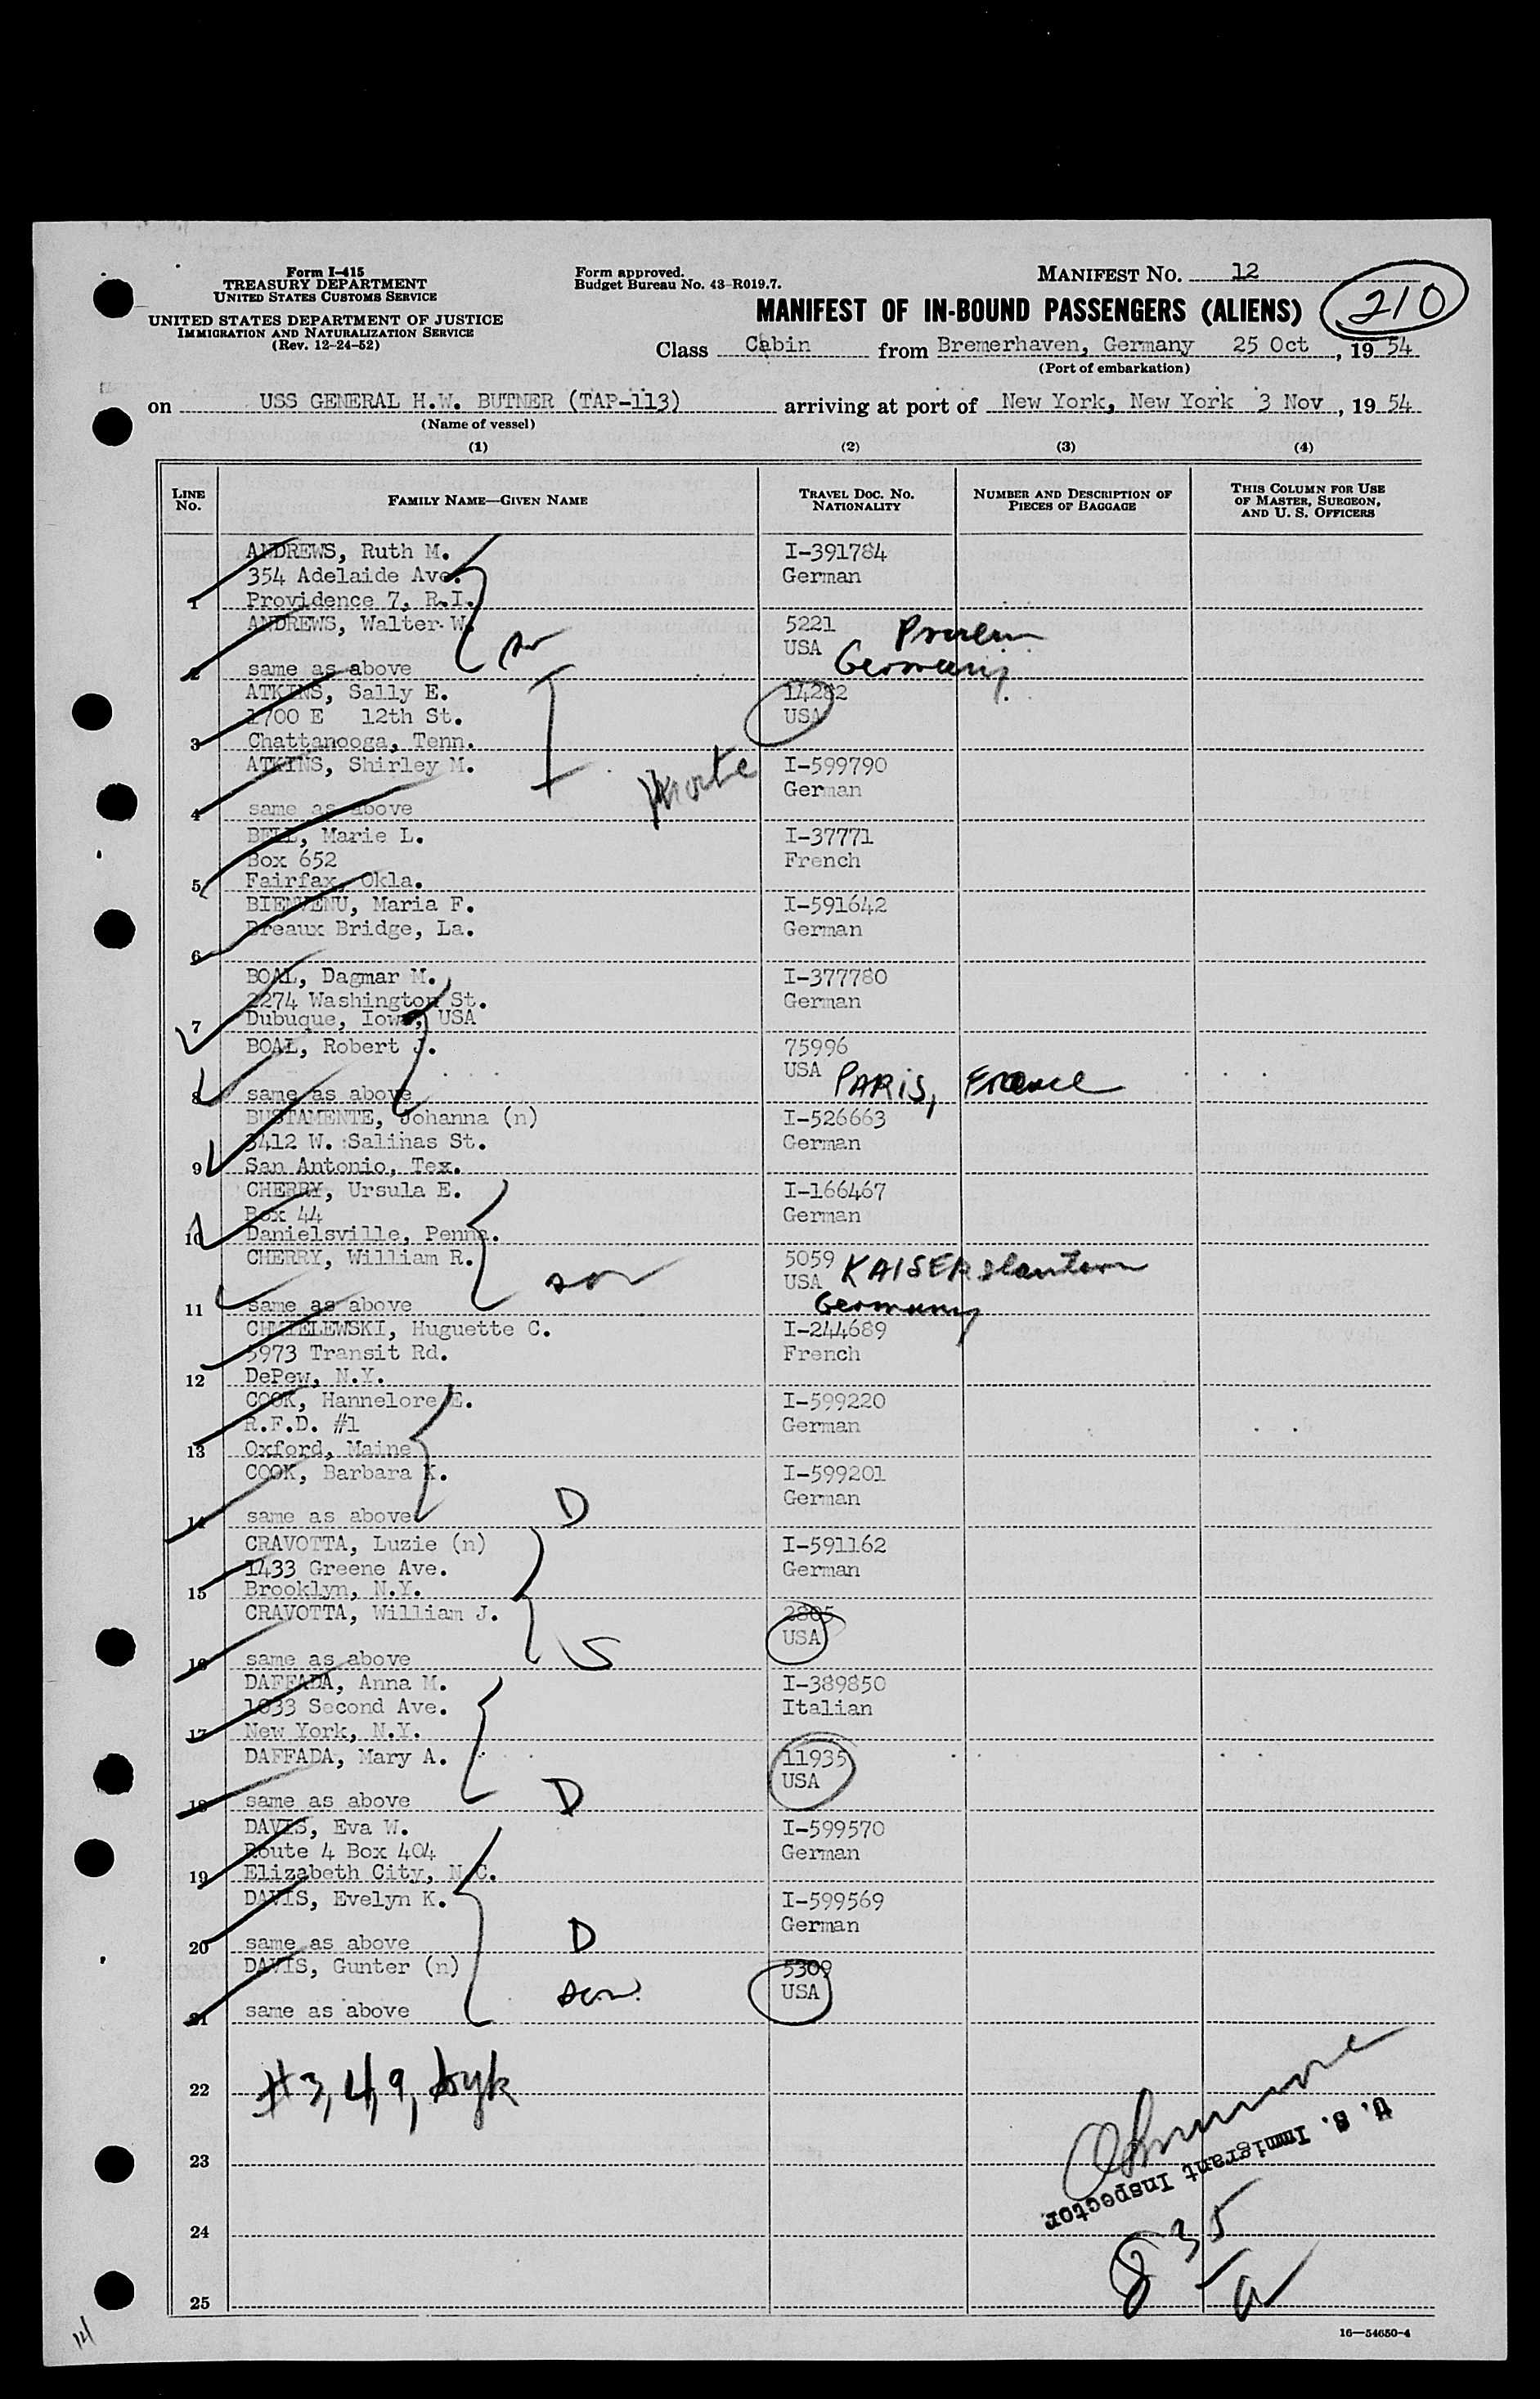 Form I-415
TREASURY DEPARTMENT
UNITED STATES CUSTOMS SERVICE
UNITED STATES DEPARTMENT OF JUSTICE
IMMIGRATION AND NATURALIZATION SERVICE
(Rev. 12-24-52)
Form approved.
Budget Bureau No. 43-R019.7.
MANIFEST No. 12
MANIFEST OF IN-BOUND PASSENGERS (ALIENS) 210
Class Cabin from Bremerhaven, Germany 25 Oct, 1954
(Port of embarkation)
on USS GENERAL H.W. BUTNER (TAP-113) arriving at port of New York, New York 3 Nov, 1954
(Name of vessel)
(1) (2) (3) (4)
LINE No. FAMILY NAME—GIVEN NAME TRAVEL DOC. NO. NATIONALITY NUMBER AND DESCRIPTION OF PIECES OF BAGGAGE THIS COLUMN FOR USE OF MASTER, SURGEON, AND U. S. OFFICERS
ANDREWS, Ruth M. I-391784
354 Adelaide Ave. German
1 Providence 7, R.I.
ANDREWS, Walter W. 5221
USA Germany
2 same as above
ATKINS, Sally E. 14282
1700 E 12th St. USA
3 Chattanooga, Tenn.
ATKINS, Shirley M. I-599790
German
4 same as above
BELL, Marie L. I-37771
Box 652 French
5 Fairfax, Okla.
BIENVENU, Maria F. I-591642
Breaux Bridge, La. German
6
BOAL, Dagmar M. I-377780
2274 Washington St. German
7 Dubuque, Iowa, USA
BOAL, Robert J. 75996
USA PARIS, France
8 same as above
BUSTAMENTE, Johanna (n) I-526663
3412 W. Salinas St. German
9 San Antonio, Tex.
CHERRY, Ursula E. I-166467
Box 44 German
10 Danielsville, Penna.
CHERRY, William R. 5059
son USA KAISERslautern
11 same as above Germany
CHMIELEWSKI, Huguette C. I-244689
5973 Transit Rd. French
12 DePew, N.Y.
COOK, Hannelore E. I-599220
R.F.D. #1 German
13 Oxford, Maine
COOK, Barbara K. I-599201
German
14 same as above D
CRAVOTTA, Luzie (n) I-591162
1433 Greene Ave. German
15 Brooklyn, N.Y.
CRAVOTTA, William J. 2805
USA
16 same as above S
DAFFADA, Anna M. I-389850
1033 Second Ave. Italian
17 New York, N.Y.
DAFFADA, Mary A. 11935
USA
18 same as above D
DAVIS, Eva W. I-599570
Route 4 Box 404 German
19 Elizabeth City, N.C.
DAVIS, Evelyn K. I-599569
German
20 same as above D
DAVIS, Gunter (n) 5309
son USA
21 same as above
22 #3,4,9,
23
24
25
U. S. Immigrant Inspector
835
a
16—54650-4